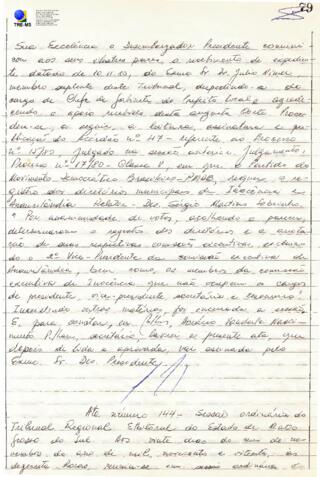 79
TRE-MS
Sua Excelência o Desembargador Presidente comuni-
cou aos seus ilustres pares, o recebimento de expedien-
te datado de 10.11.80, do Exmo Sr. Dr. Julio
membro suplente deste Tribunal, despedindo-se do
cargo de Chefe de Gabinete do Prefeito local e agrade-
cendo o apoio recebido desta augusta Corte. Proce-
deu-se, a seguir, a leitura, assinatura e pu-
blicação do Acórdão nº 47 - referente ao Processo
nº julgado na sessão anterior. Julgamento:
Processo nº 17/80 - Classe em que o Partido do
Movimento Democrático Brasileiro - PMDB, requer o re-
gistro dos diretórios municipais de Inocência e
Anaurilândia. Relator: Dr. Sérgio Martins Sobrinho.
"Por unanimidade de votos, acolhendo o parecer,
determinaram o registro dos diretórios e a anota-
ção de suas respectivas comissões executivas, excluin-
do o 2º Vice-Presidente da comissão executiva de
Anaurilândia, bem como, os membros da comissão
executiva de Inocência que não ocupam os cargos
de presidente, vice-presidente, secretário e tesoureiro".
Inexistindo outras matérias, foi encerrada a sessão.
E, para constar, eu,
secretário, lavrei a presente ata, que
depois de lida e aprovada, vai assinada pelo
Exmo. Sr. Des. Presidente.
Ata número 144 - Sessão ordinária do
Tribunal Regional Eleitoral do Estado de Mato
Grosso do Sul. Aos vinte dias do mês de no-
vembro do ano de mil, novecentos e oitenta, às
dezessete horas, reuniu-se em sessão ordinária o